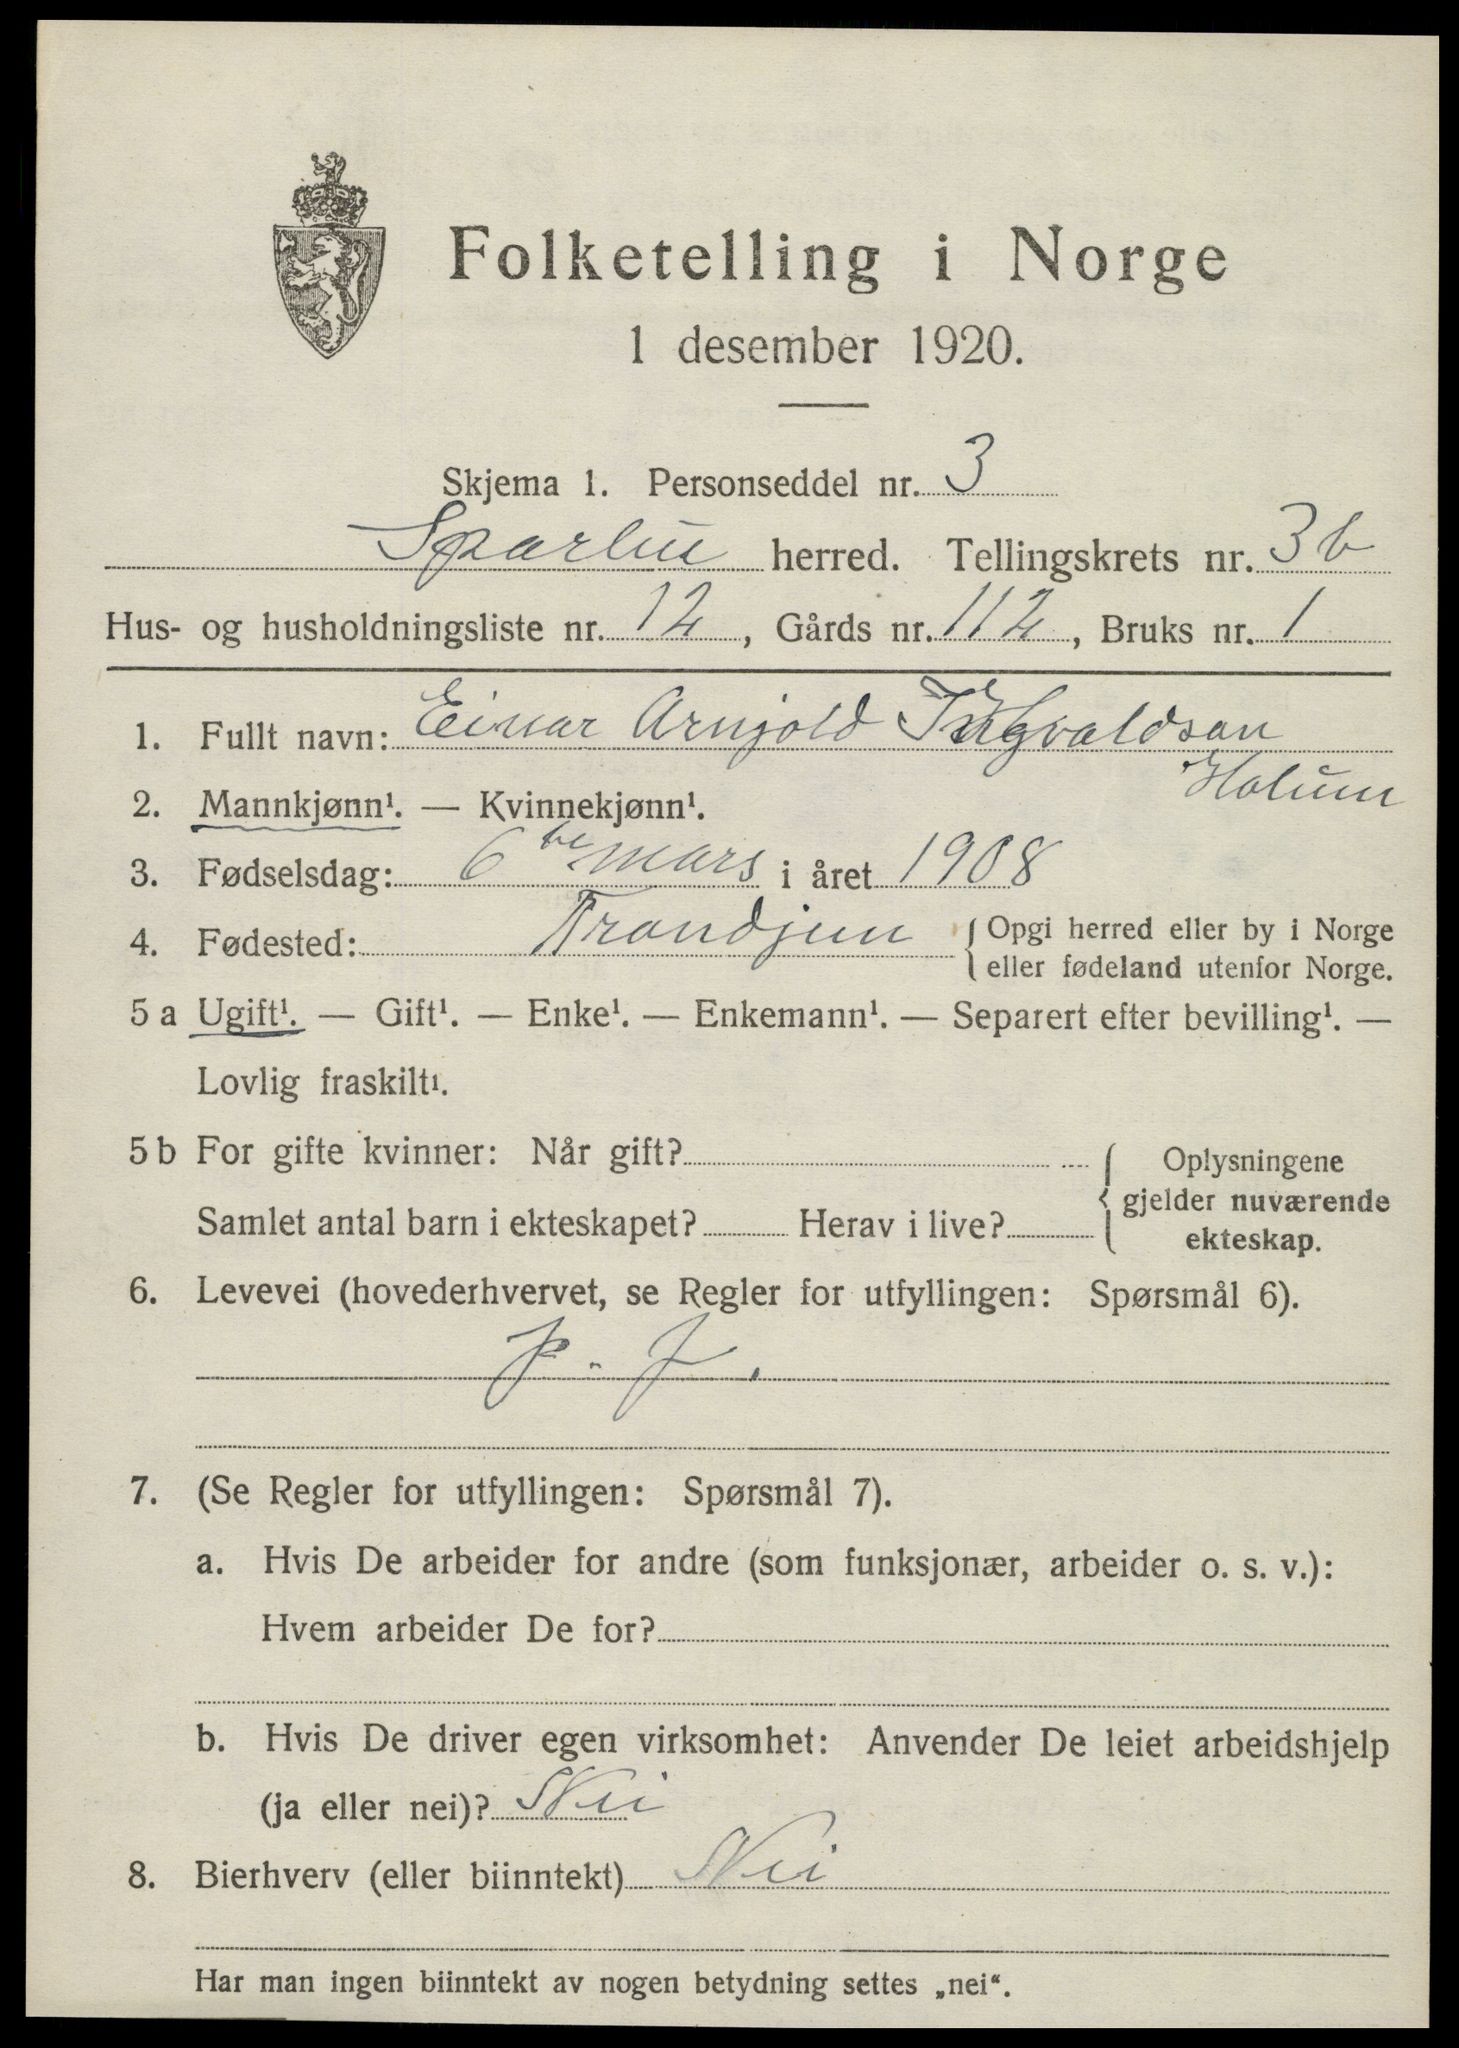 Folketelling i Norge
1 desember 1920.
Skjema 1. Personseddel nr. 3
Sparbu herred. Tellingskrets nr. 3b
Hus- og husholdningsliste nr. 12, Gårds nr. 112, Bruks nr. 1
1. Fullt navn: Einar Arnjold Ingvaldsan
Holum
2. Mannkjønn¹. — Kvinnekjønn¹.
3. Fødselsdag: 6te mars i året 1908
4. Fødested: Trondjem { Opgi herred eller by i Norge
eller fødeland utenfor Norge.
5 a Ugift¹. — Gift¹. — Enke¹. — Enkemann¹. — Separert efter bevilling¹. —
Lovlig fraskilt¹.
5 b For gifte kvinner: Når gift? { Oplysningene
gjelder nuværende
Samlet antal barn i ekteskapet? Herav i live? ekteskap.
6. Levevei (hovederhvervet, se Regler for utfyllingen: Spørsmål 6).
7. (Se Regler for utfyllingen: Spørsmål 7).
a. Hvis De arbeider for andre (som funksjonær, arbeider o. s. v.):
Hvem arbeider De for?
b. Hvis De driver egen virksomhet: Anvender De leiet arbeidshjelp
(ja eller nei)? Nei
8. Bierhverv (eller biinntekt) Nei
Har man ingen biinntekt av nogen betydning settes „nei“.